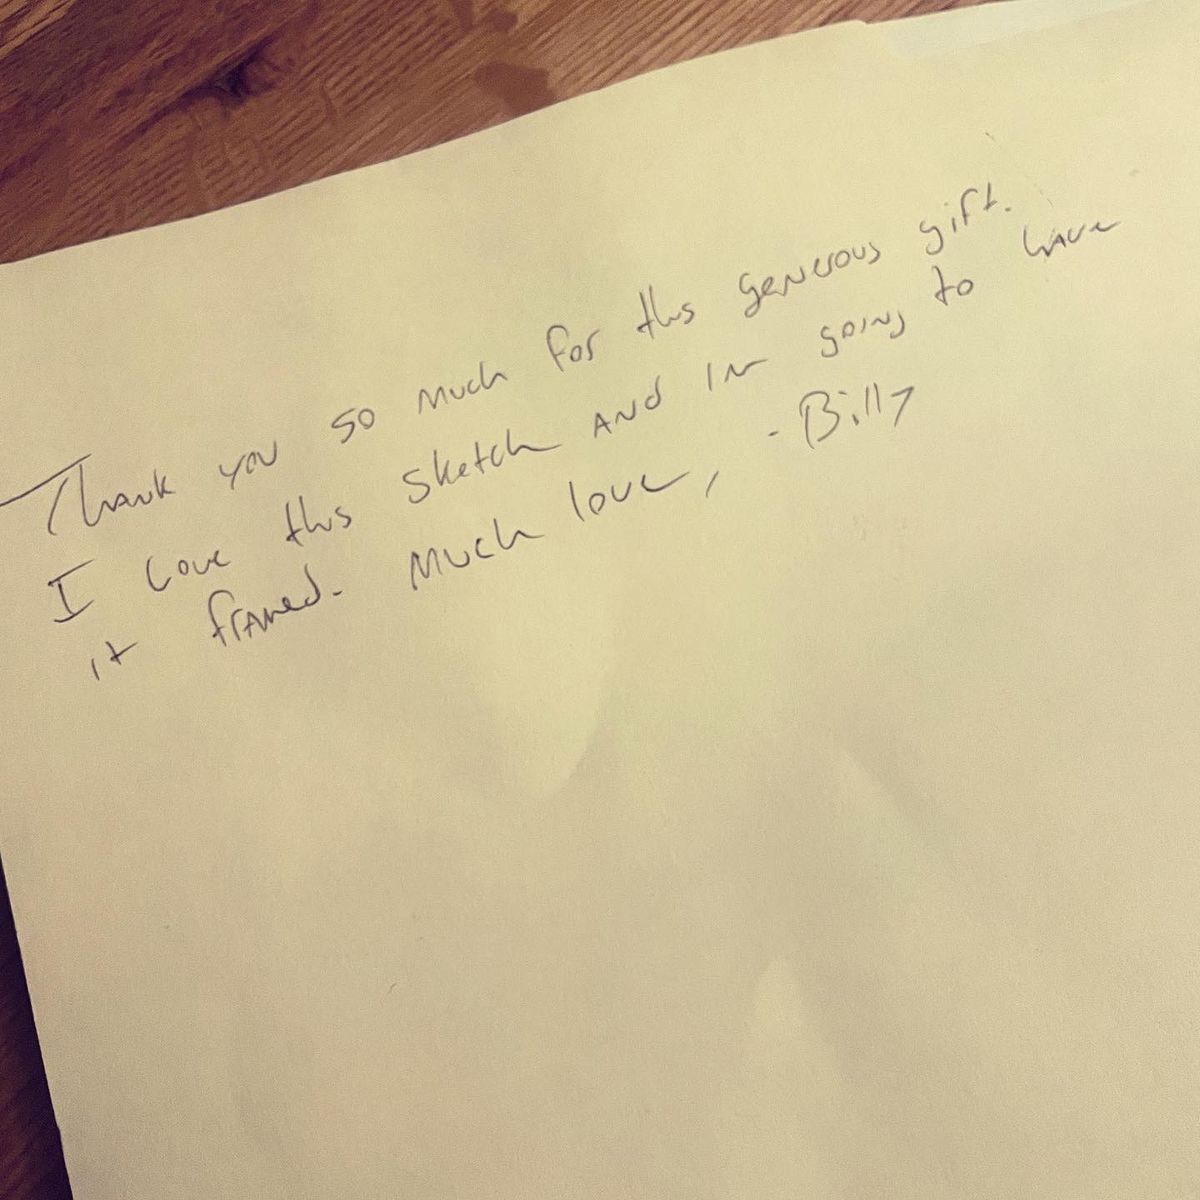 Thank you so much for this generous gift.
I love this sketch and Im going to have
it framed. Much love, - Billy